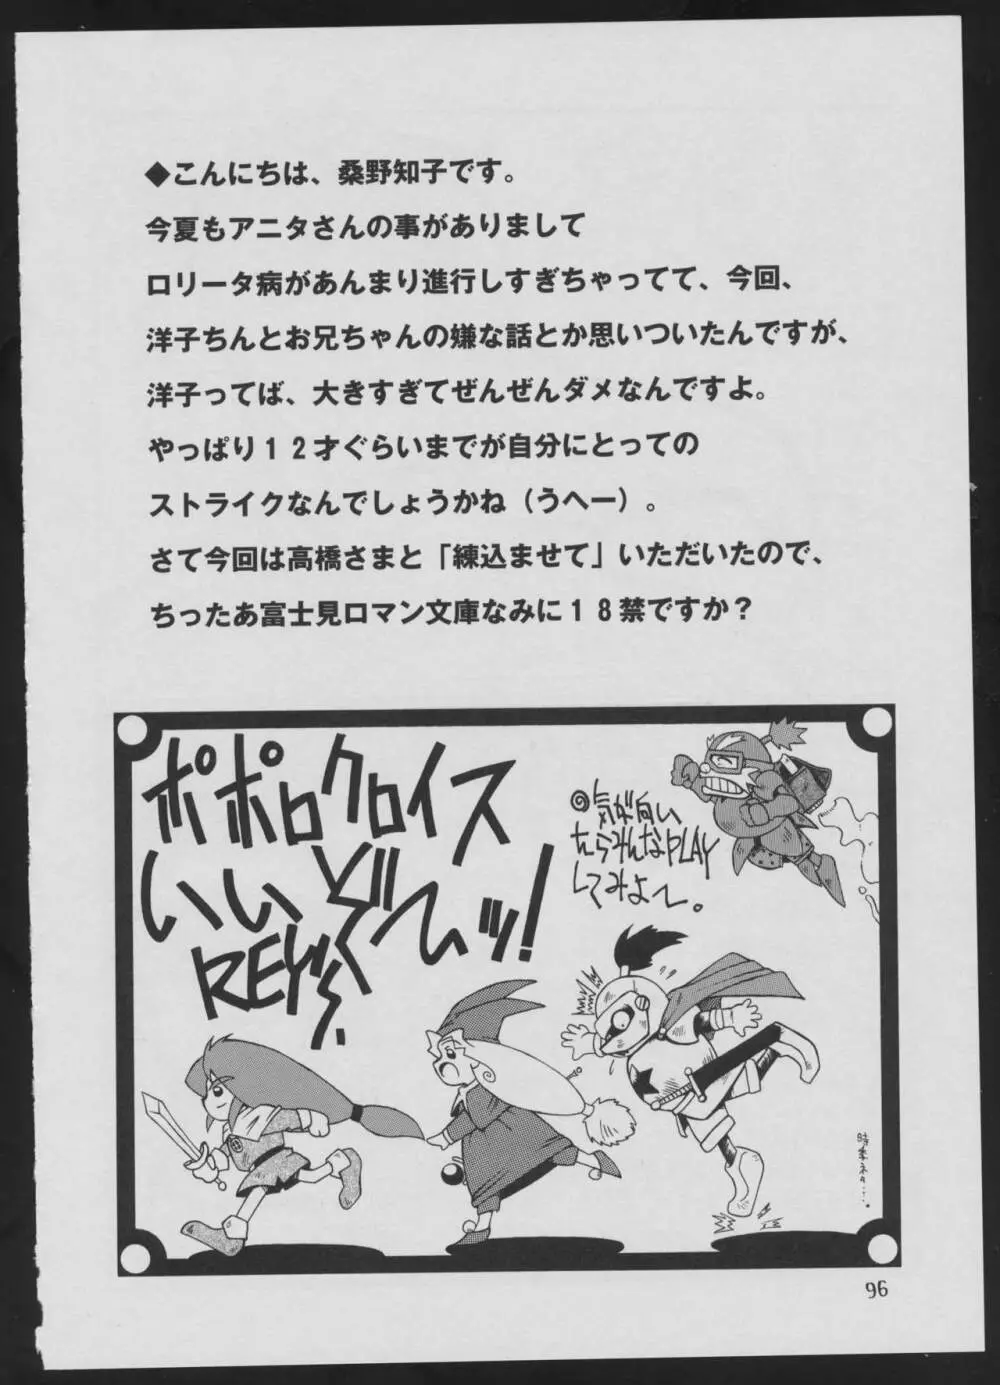 ◆こんにちは、桑野知子です。
今夏もアニタさんの事がありまして
ロリータ病があんまり進行しすぎちゃってて、今回、
洋子ちんとお兄ちゃんの嫌な話とか思いついたんですが、
洋子ってば、大きすぎてぜんぜんダメなんですよ。
やっぱり12才ぐらいまでが自分にとっての
ストライクなんでしょうかね（うへー）。
さて今回は高橋さまと「練込ませて」いただいたので、
ちったあ富士見ロマン文庫なみに18禁ですか？
ポポロクロイス
いいぞーッ!
REY
◎気が向い
たらみんなPLAY
してみよー。
時事ネタ…。
96